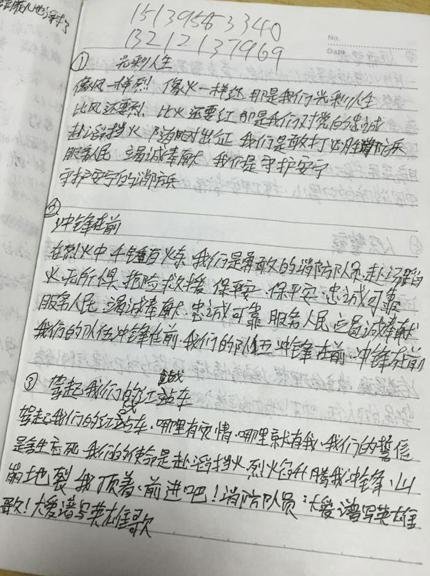 15139583340
13212137969
No.
Date
① 光彩人生
像风一样烈 像火一样红 那是我们光彩人生
比风还要烈 比火还要红 那是我们对党的忠诚
赴汤蹈火 随时出征 我们是敢打必胜消防兵
服务人民 竭诚奉献 我们是守护安宁
守护安宁的消防兵
② 冲锋在前
在烈火中千锤百炼 我们是勇敢的消防队员 赴汤蹈
火无所惧 抢险救援 保平安 保平安 忠诚可靠
服务人民 竭诚奉献 忠诚可靠 服务人民 竭诚奉献
我们的队伍冲锋在前 我们的队伍 冲锋在前 冲锋在前
③ 驾起我们的红战车
驾起我们的红战车 哪里有灾情 哪里就有我 我们的誓言
是生死 我们的使命是赴汤蹈火 烈火升腾我冲锋 山
崩地裂 我顶着 前进吧!消防队员 大爱谱写英雄
歌!大爱谱写英雄歌